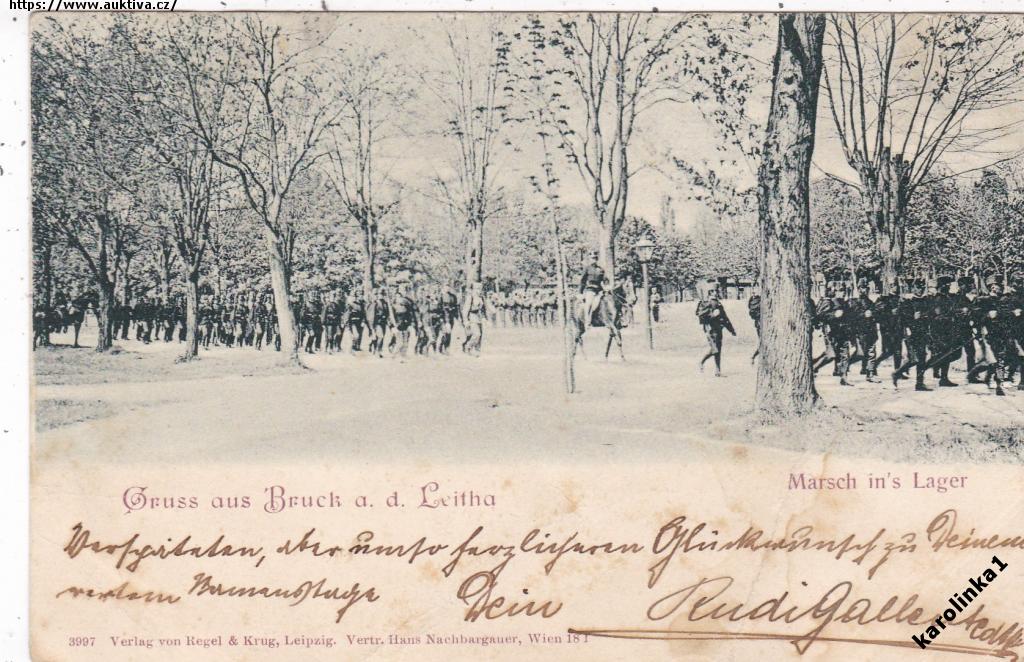 https://www.auktiva.cz/
Gruss aus Bruck a. d. Leitha
Marsch in's Lager
Verspäteten, aber umso herzlicheren Glückwunsch zu Deinem
werten Namenstage
Dein Rudi Galle
3997 Verlag von Regel & Krug, Leipzig. Vertr. Hans Nachbargauer, Wien 18/1
karolinka1